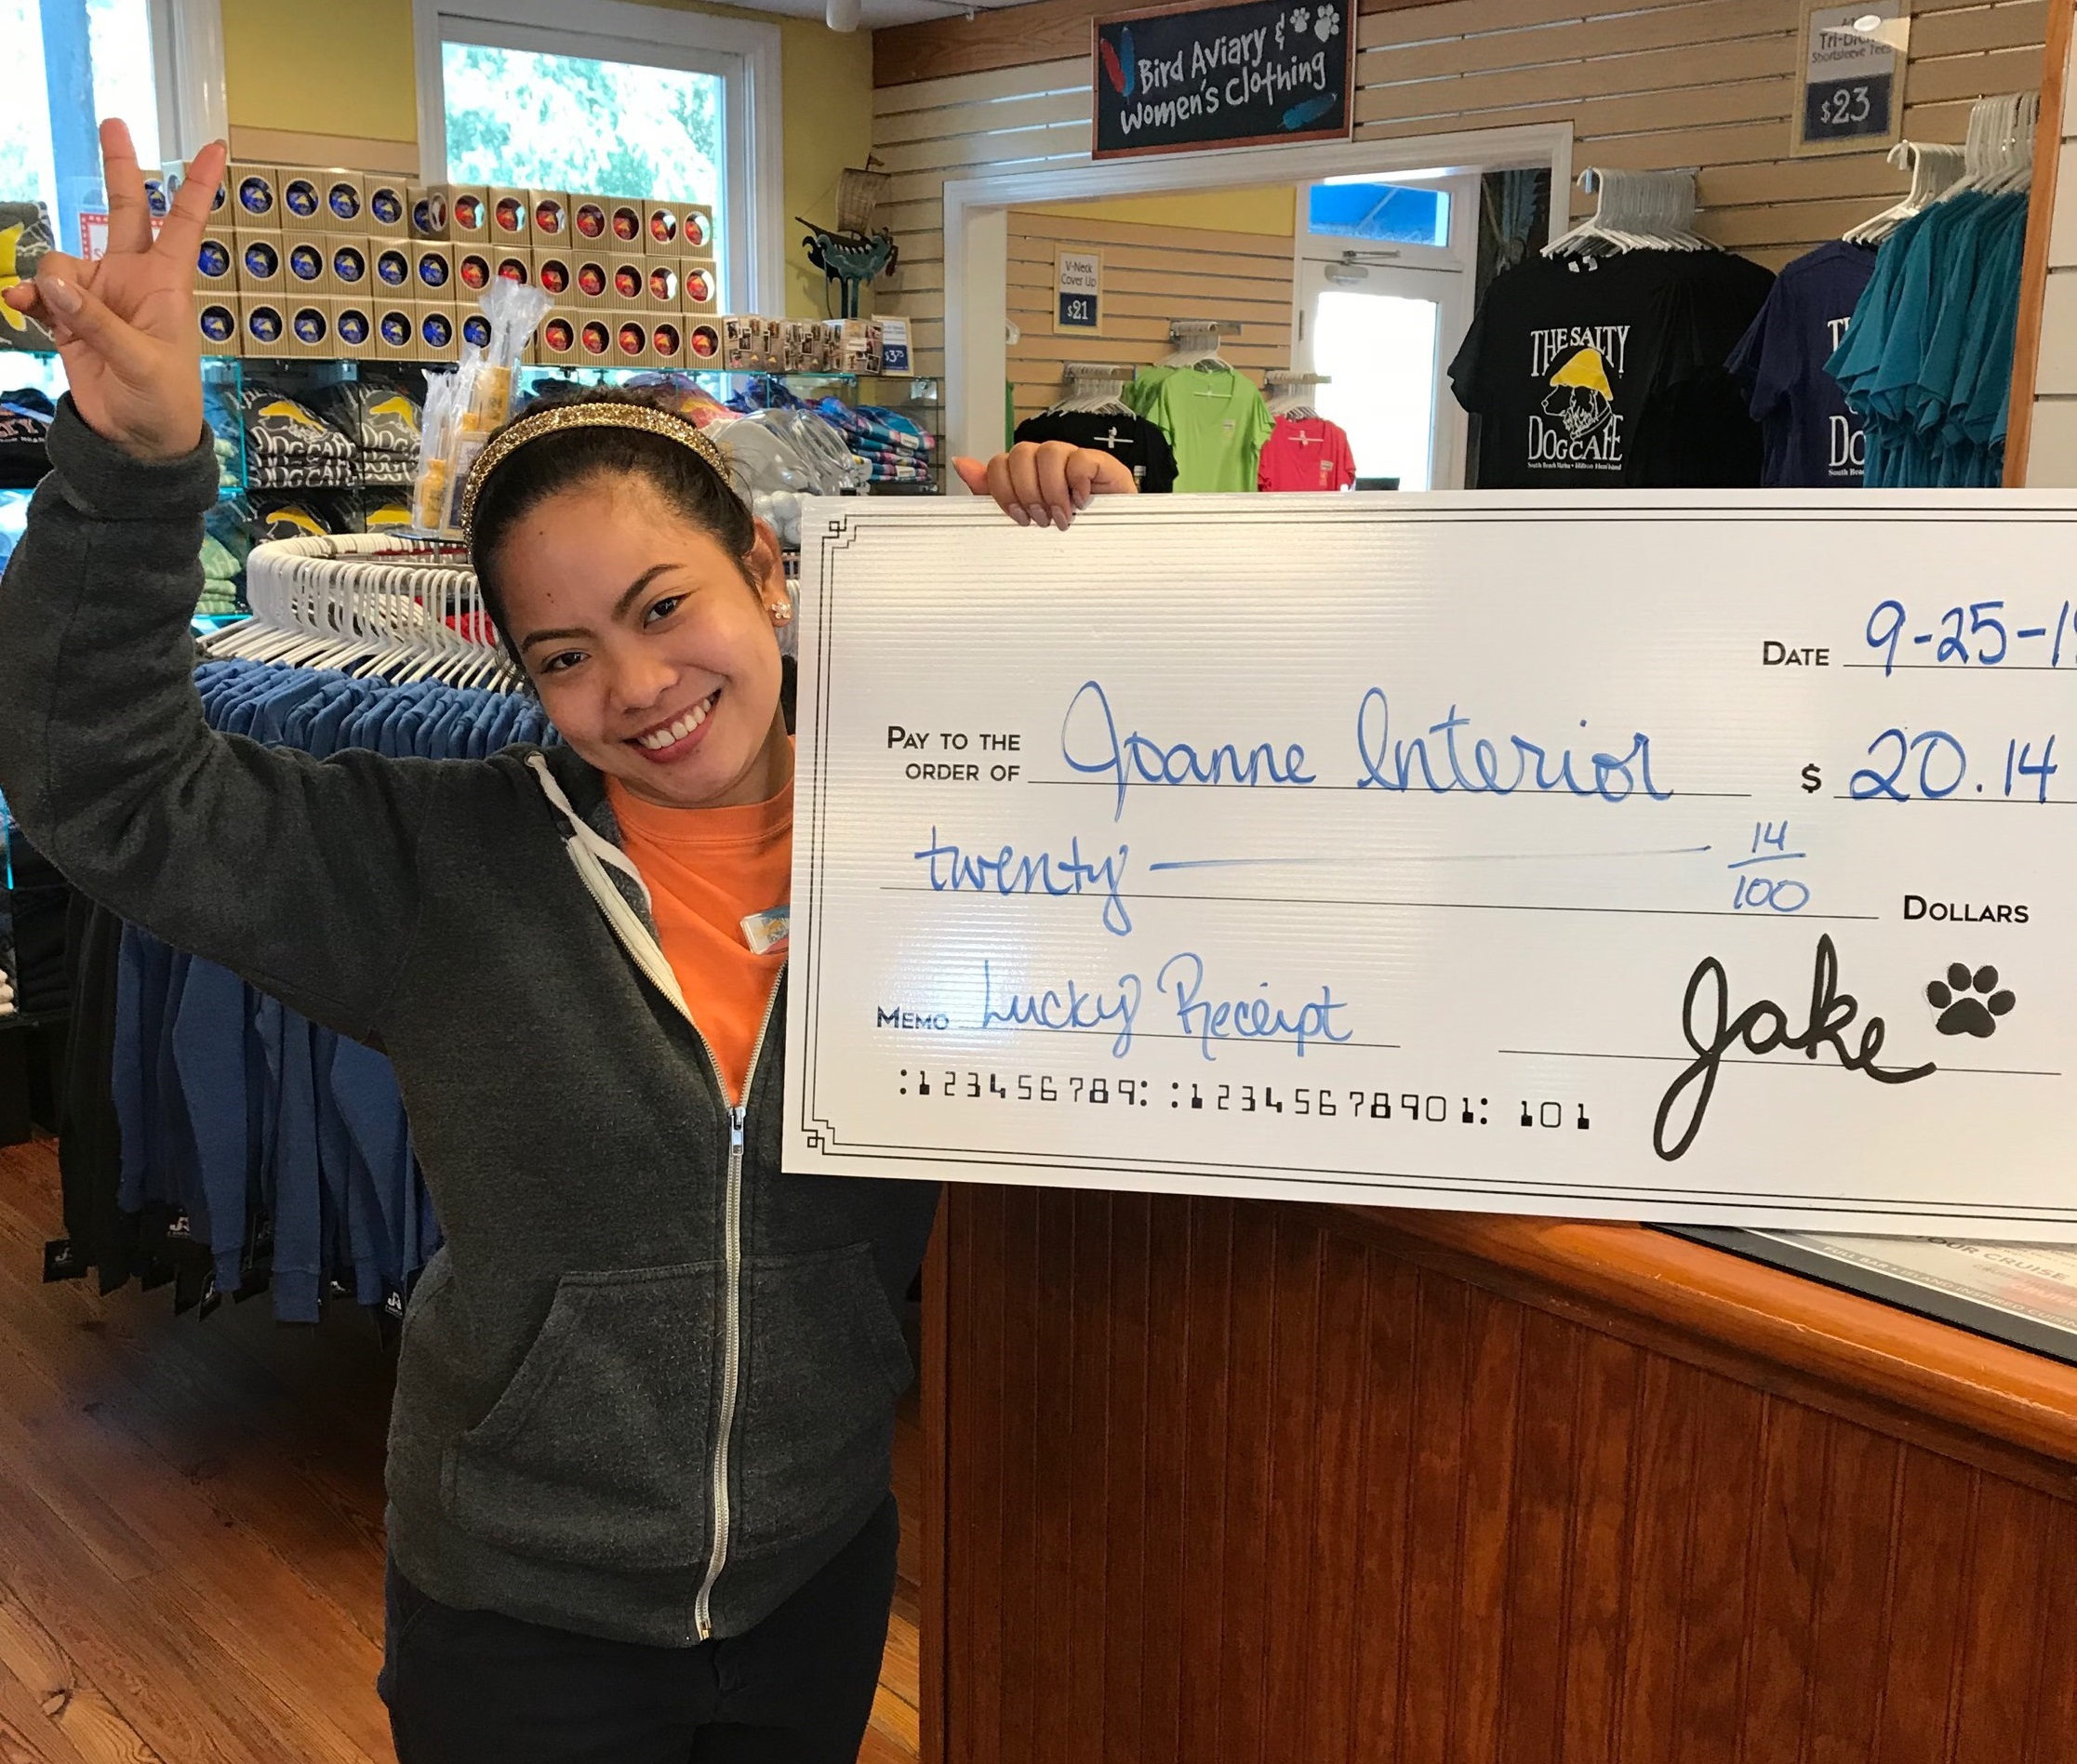 Bird Aviary &
Women's Clothing
Tri-Blend
Shortsleeve Tees
$23
V-Neck
Cover Up
$21
$3.75
THE SALTY
DOG CAFE
South Beach Marina • Hilton Head Island
DOG CAFE
DOG CAFE
DATE 9-25-1
PAY TO THE
ORDER OF Joanne Interior $ 20.14
twenty — 14/100 DOLLARS
MEMO Lucky Receipt Jake
:123456789: :12345678901: 101
YOUR CRUISE
FULL BAR • ISLAND INSPIRED CUISINE